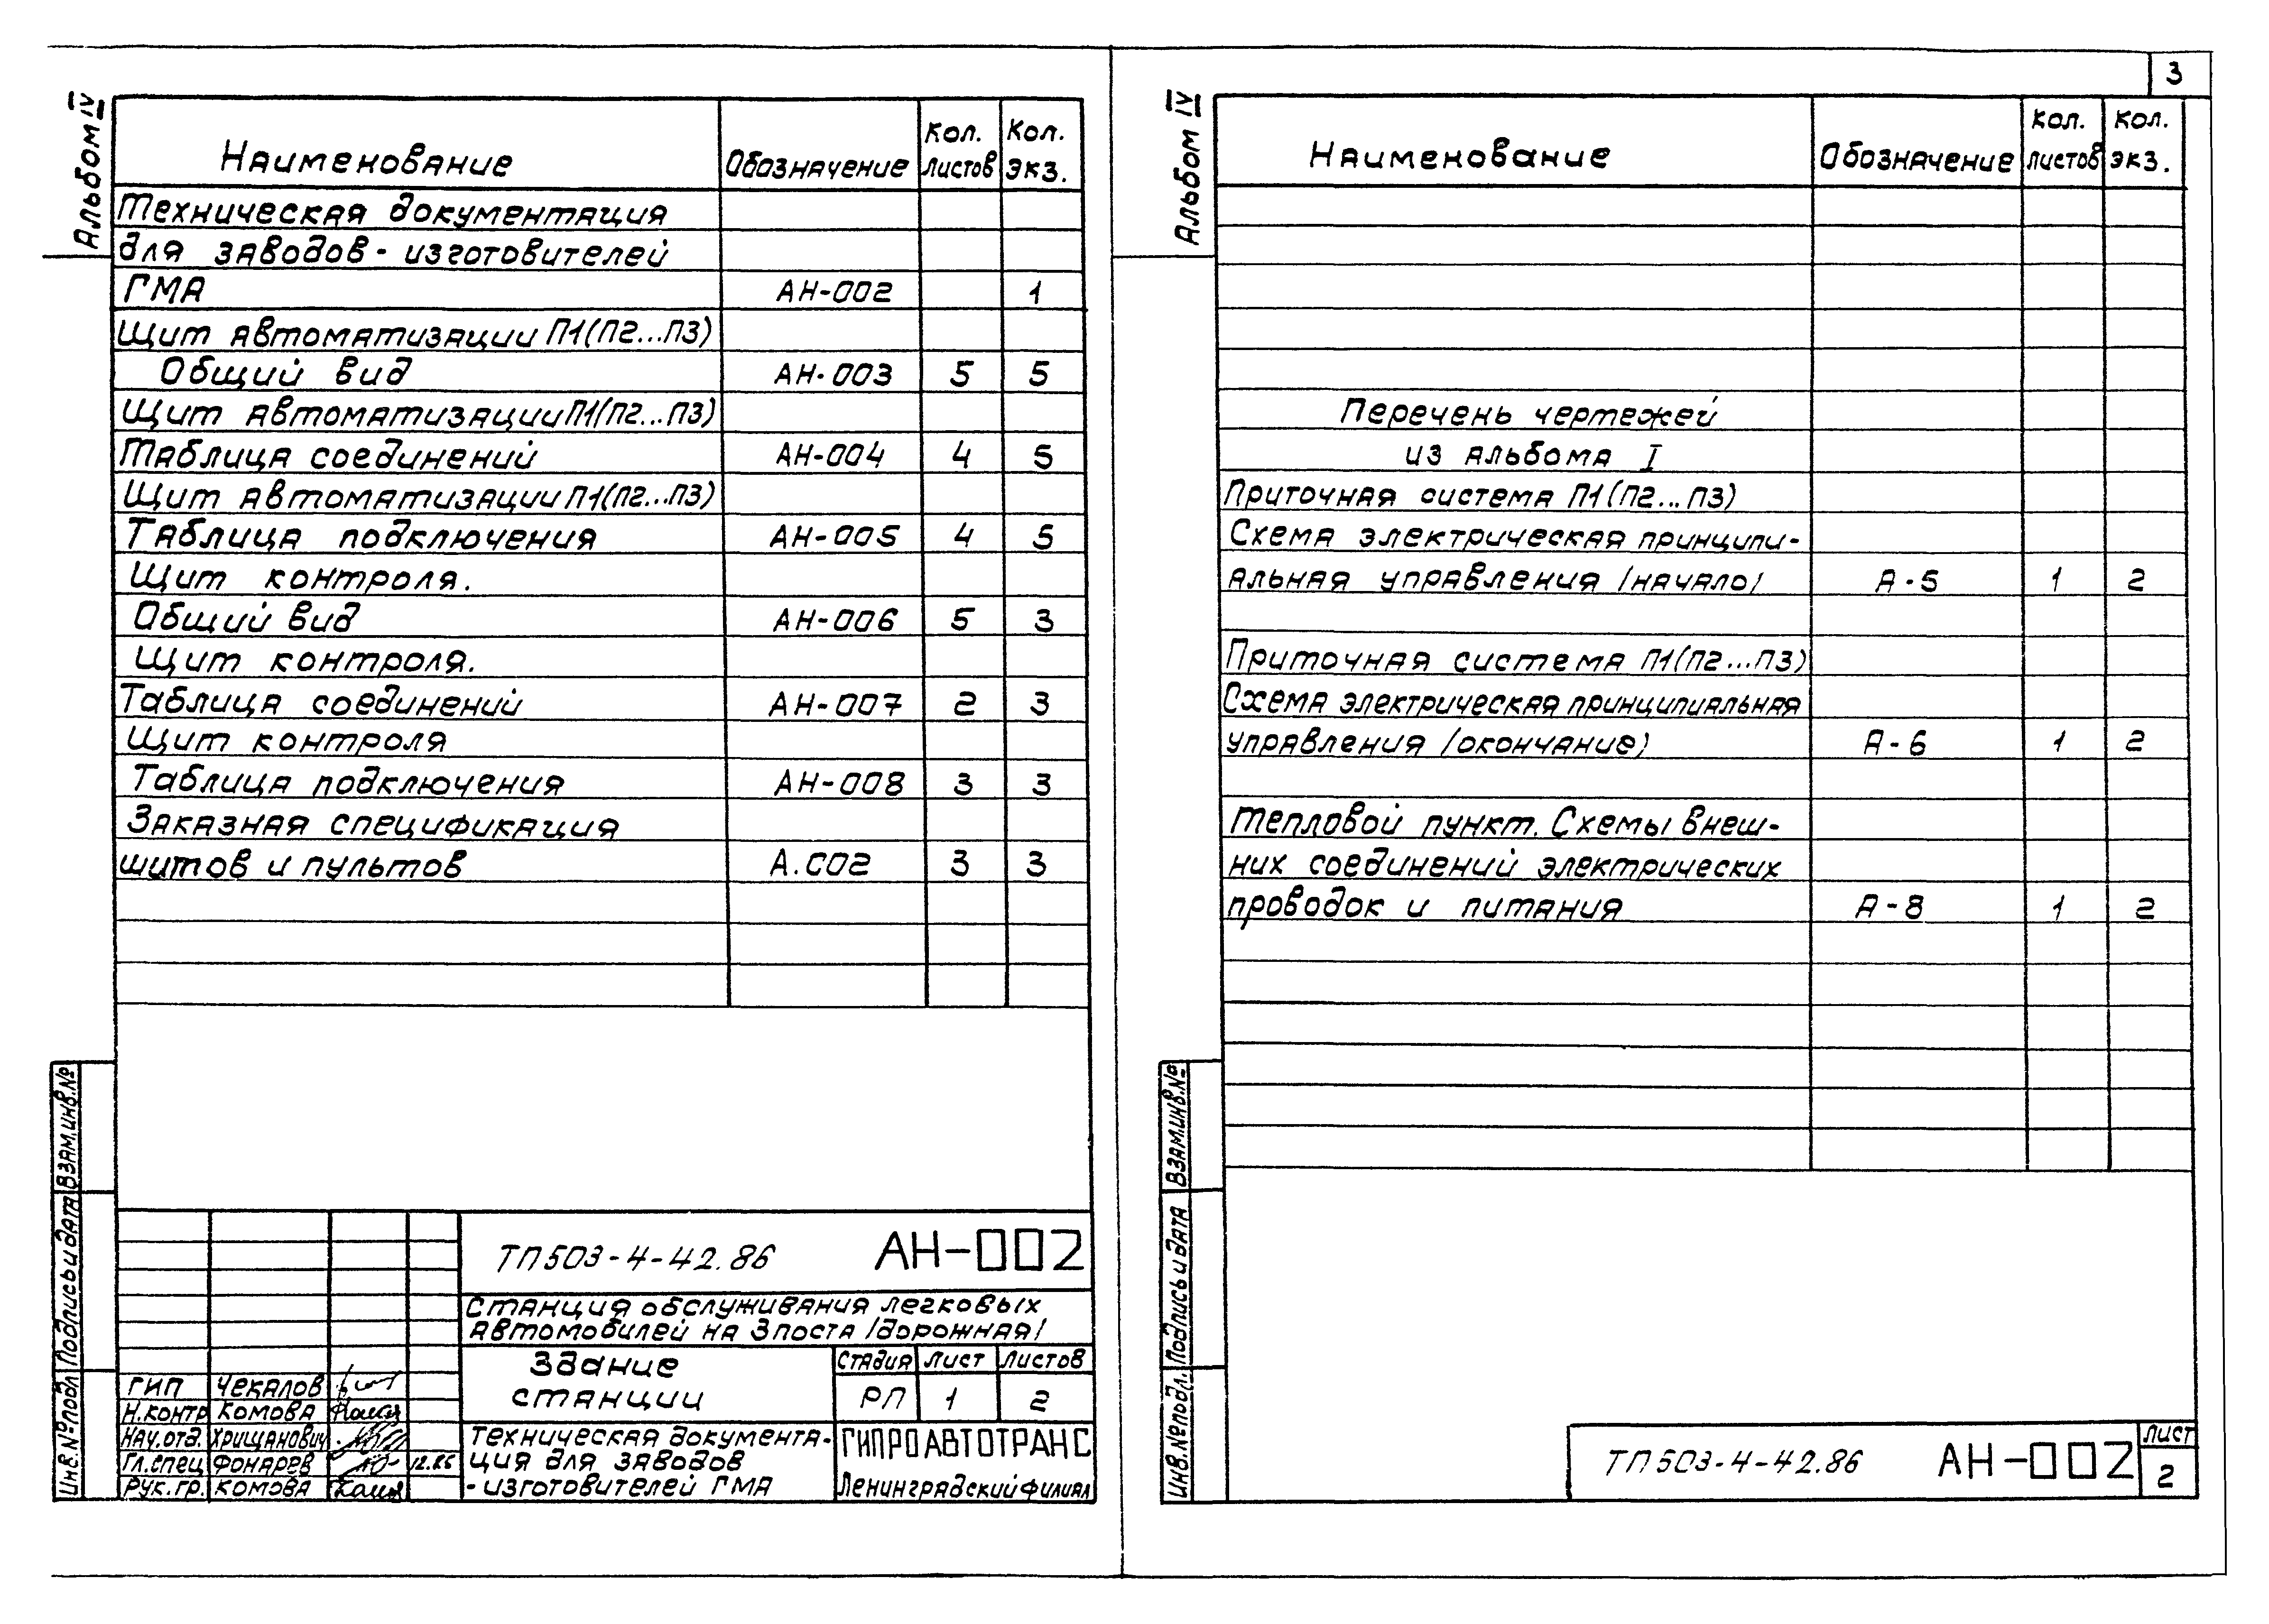 Альбом IV
Наименование Обозначение Кол. листов Кол. экз.
Техническая документация
для заводов-изготовителей
ГМА АН-002 1
Щит автоматизации П1(П2...П3)
Общий вид АН-003 5 5
Щит автоматизации П1(П2...П3)
Таблица соединений АН-004 4 5
Щит автоматизации П1(П2...П3)
Таблица подключения АН-005 4 5
Щит контроля.
Общий вид АН-006 5 3
Щит контроля.
Таблица соединений АН-007 2 3
Щит контроля
Таблица подключения АН-008 3 3
Заказная спецификация
щитов и пультов А.СО2 3 3
Взам.инв.№
Подпись и дата
Инв.№подл
ТП503-4-42.86 АН-002
Станция обслуживания легковых
автомобилей на 3 поста /дорожная/
Здание
станции
Стадия Лист Листов
РП 1 2
ГИП Чекалов
Н.контр Комова
Нач.отд. Хрищанович
Гл.спец Фонарев 12.85
Рук.гр. Комова
Техническая документа-
ция для заводов
-изготовителей ГМА
ГИПРОАВТОТРАНС
Ленинградский филиал
3
Альбом IV
Наименование Обозначение Кол. листов Кол. экз.
Перечень чертежей
из альбома I
Приточная система П1(П2...П3)
Схема электрическая принципи-
альная управления /начало/ А-5 1 2
Приточная система П1(П2...П3)
Схема электрическая принципиальная
управления /окончание) А-6 1 2
Тепловой пункт. Схемы внеш-
них соединений электрических
проводок и питания А-8 1 2
Взам.инв.№
Подпись и дата
Инв.№подл.
ТП503-4-42.86 АН-002
Лист
2